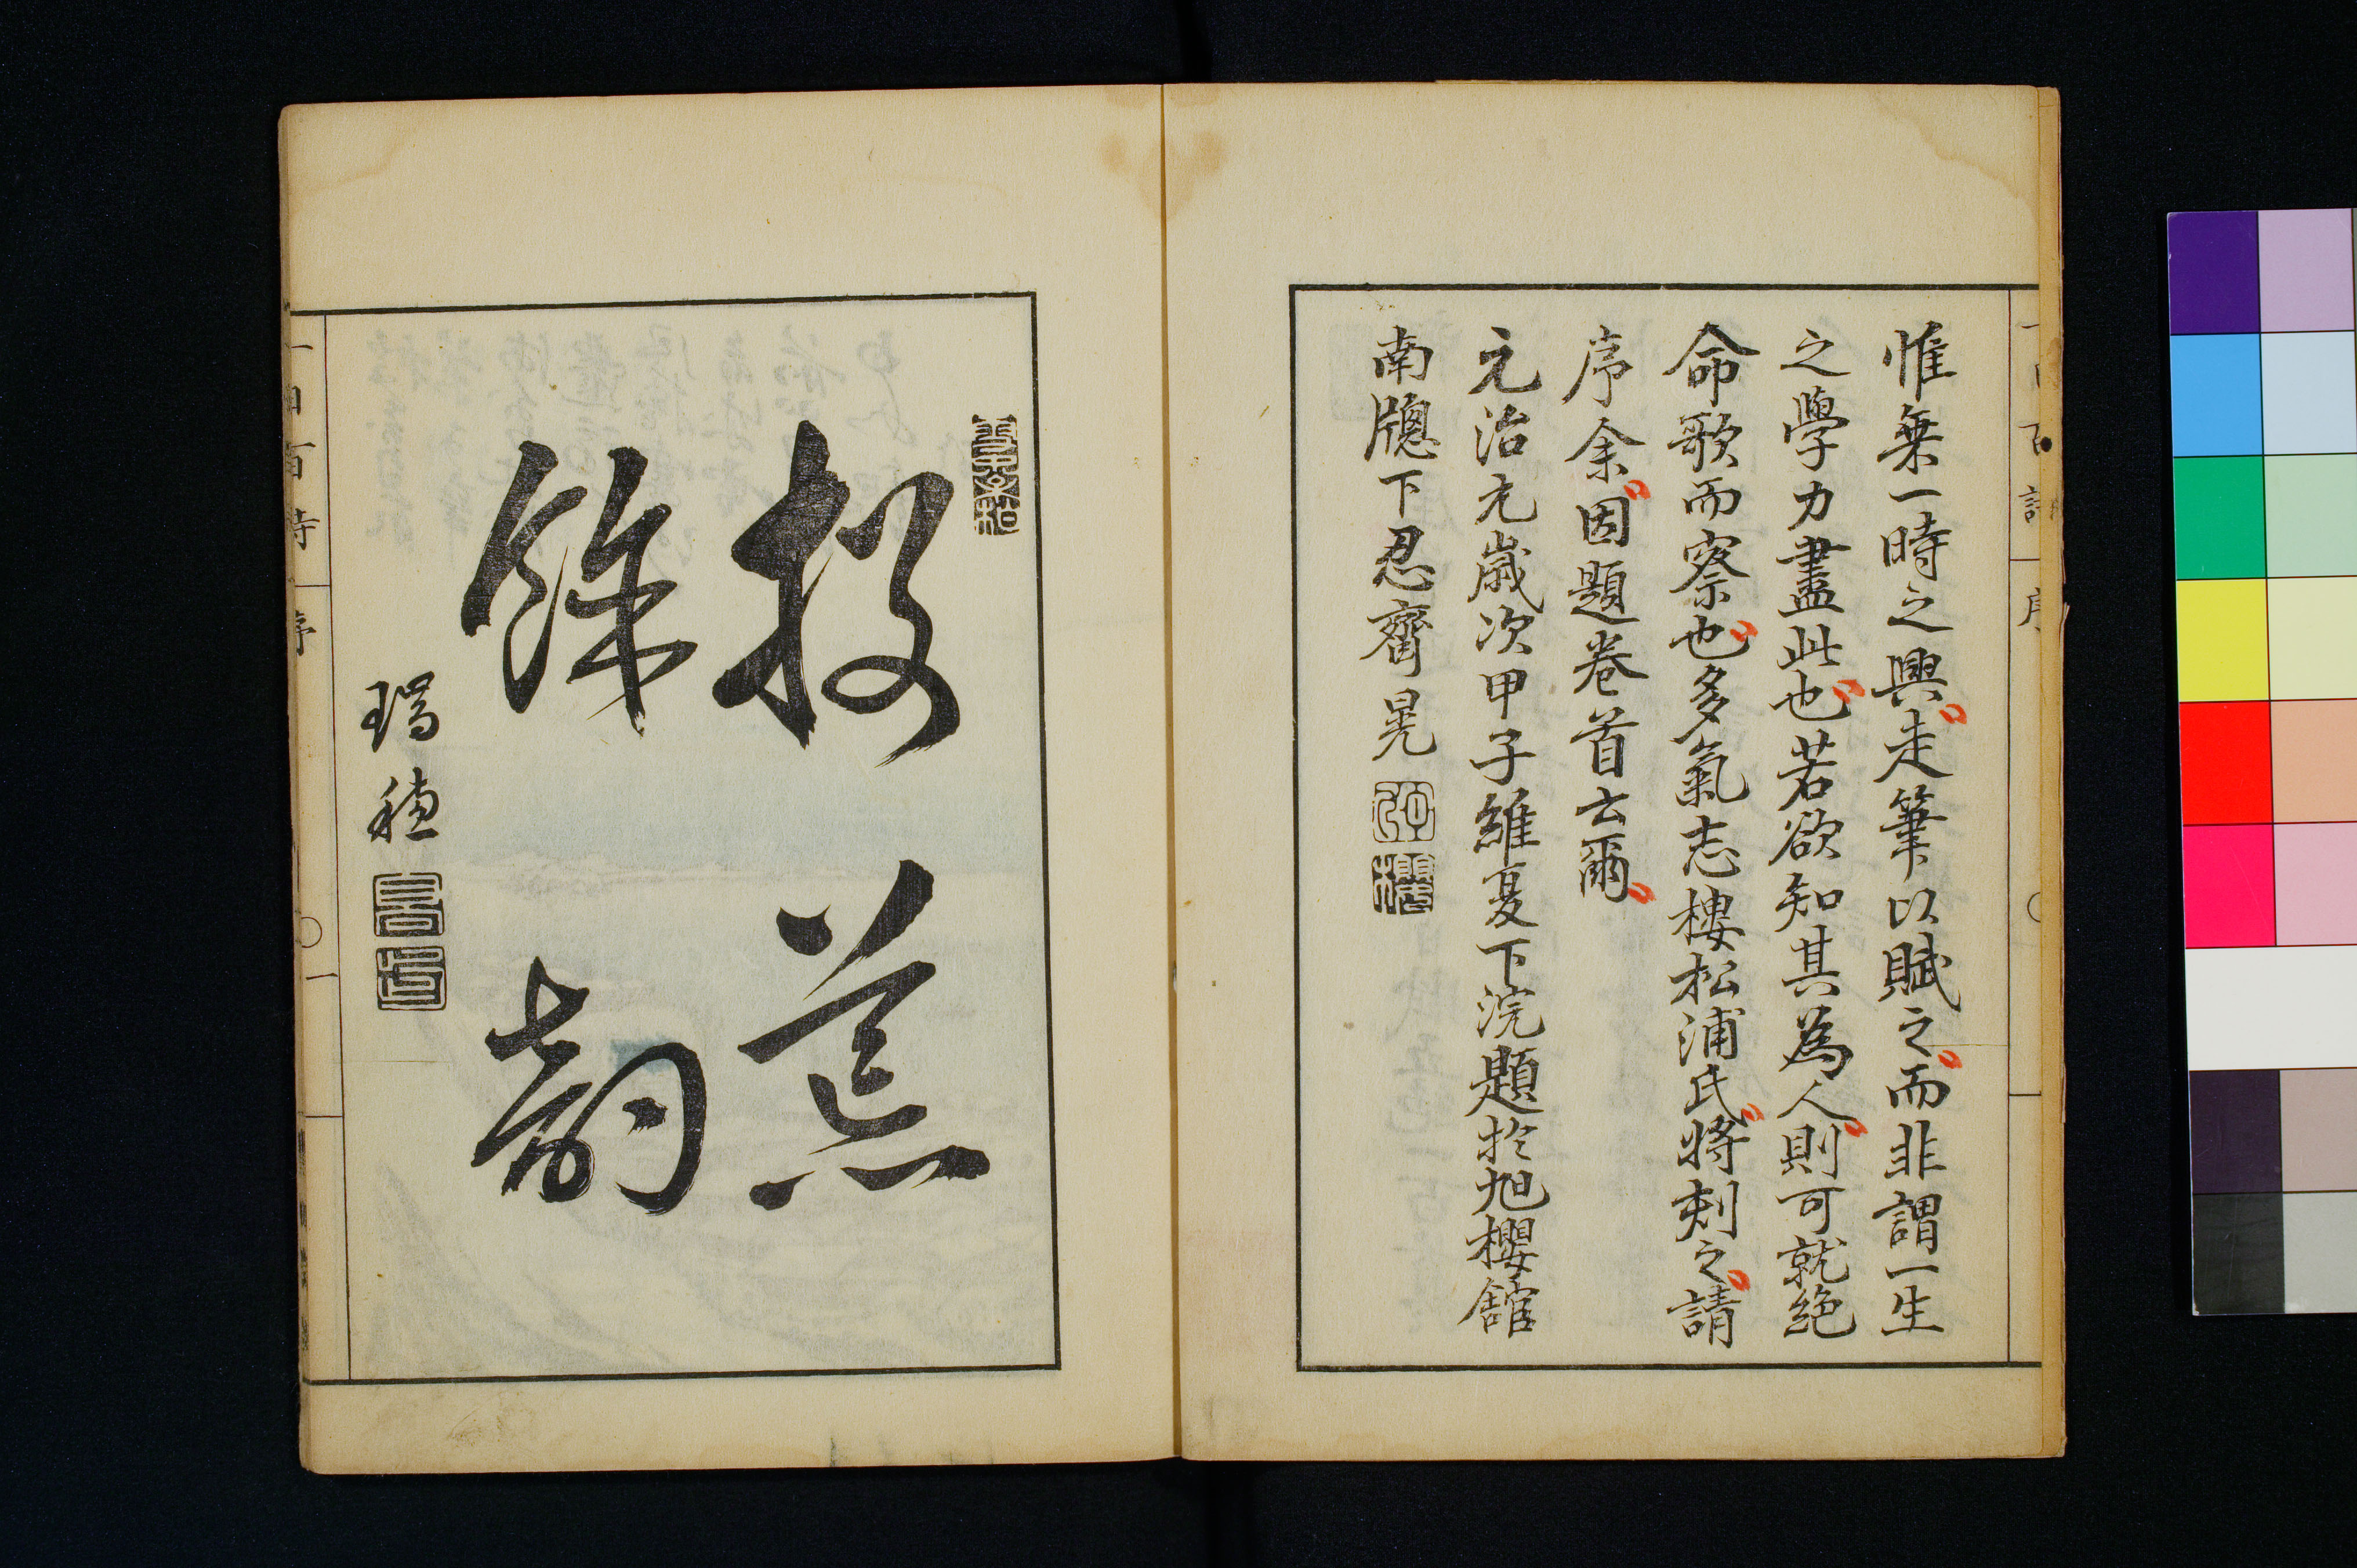 惟乗一時之興走筆以賦之而非謂一生
之學力盡此也若欲知其為人則可就絶
命歌而察也多氣志樓松浦氏將刻之請
序余因題卷首云爾
元治元歳次甲子維夏下浣題於旭櫻館
南牕下忍齋晃
投荒
餘韵
瑞穂
一日百詩
序
一